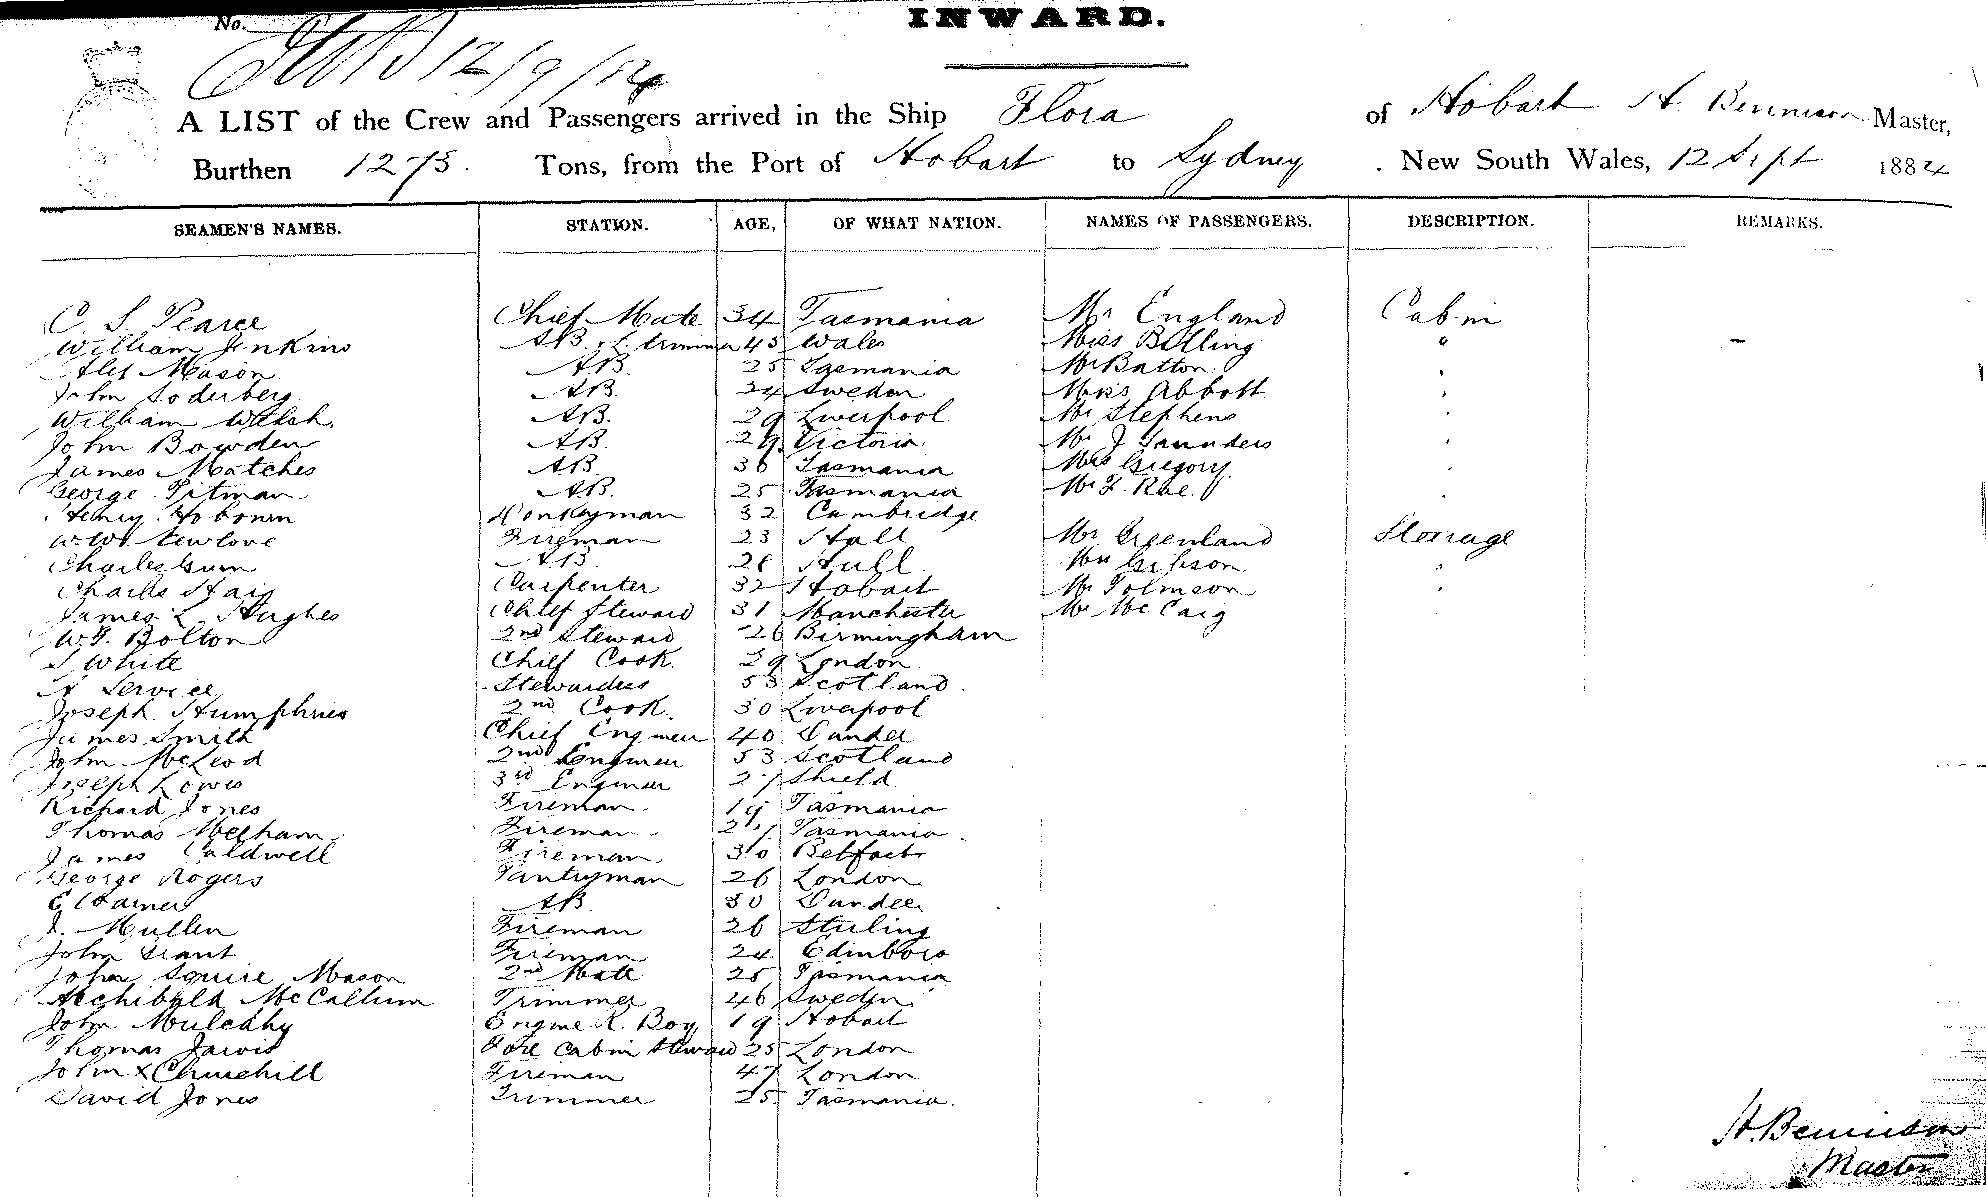 INWARD.
No.
12/9/84
A LIST of the Crew and Passengers arrived in the Ship Flora of Hobart H. Bennison Master,
Burthen 1273. Tons, from the Port of Hobart to Sydney. New South Wales, 12 Sept 1884
SEAMEN'S NAMES. STATION. AGE, OF WHAT NATION. NAMES OF PASSENGERS. DESCRIPTION. REMARKS.
C. S. Pearce Chief Mate 34 Tasmania Mr England Cabin
William Jenkins AB & L. trimmer 45 Wales Miss Bolling "
Alex Mason AB 25 Tasmania Mr Batton
John Soderberg AB 24 Sweden Miss Abbott
William Welsh AB. 29 Liverpool Mr Stephens
John Bowden AB. 29 Victoria Mr J Saunders
James Matches AB 36 Tasmania Mrs Gregory
George Pitman AB. 25 Tasmania Mr F. Rae
Henry Hobourn Donkeyman 32 Cambridge
W. W. Newlove Fireman 23 Hull Mr Greenland Sterrage
Charles Gum AB 26 Hull Mrs Gibson
Charles Haig Carpenter 32 Hobart Mr Tolmson
James L Hughes Chief Steward 31 Manchester Mr McCaig
W. J. Bolton 2nd Steward 26 Birmingham
S White Chief Cook 29 London
A Service Stewardess 53 Scotland
Joseph Humphries 2nd Cook 30 Liverpool
James Smith Chief Engineer 40 Dundee
John McLeod 2nd Engineer 53 Scotland
Joseph Lowis 3rd Engineer 27 Shield
Richard Jones Fireman 19 Tasmania
Thomas Meeham Fireman 21 Tasmania
James Caldwell Fireman 30 Belfast
George Rogers Pantryman 26 London
AB 30 Dundee
J. Mullen Fireman 26 Sterling
John Grant Fireman 24 Edinboro
John Squire Mason 2nd Mate 25 Tasmania
Archibald McCallum Trimmer 46 Sweden
John Mulcahy Engine R. Boy 19 Hobart
Thomas Jarvis Fore Cabin Steward 25 London
John X Churchill Fireman 47 London
David Jones Trimmer 25 Tasmania.
H. Bennison
Master